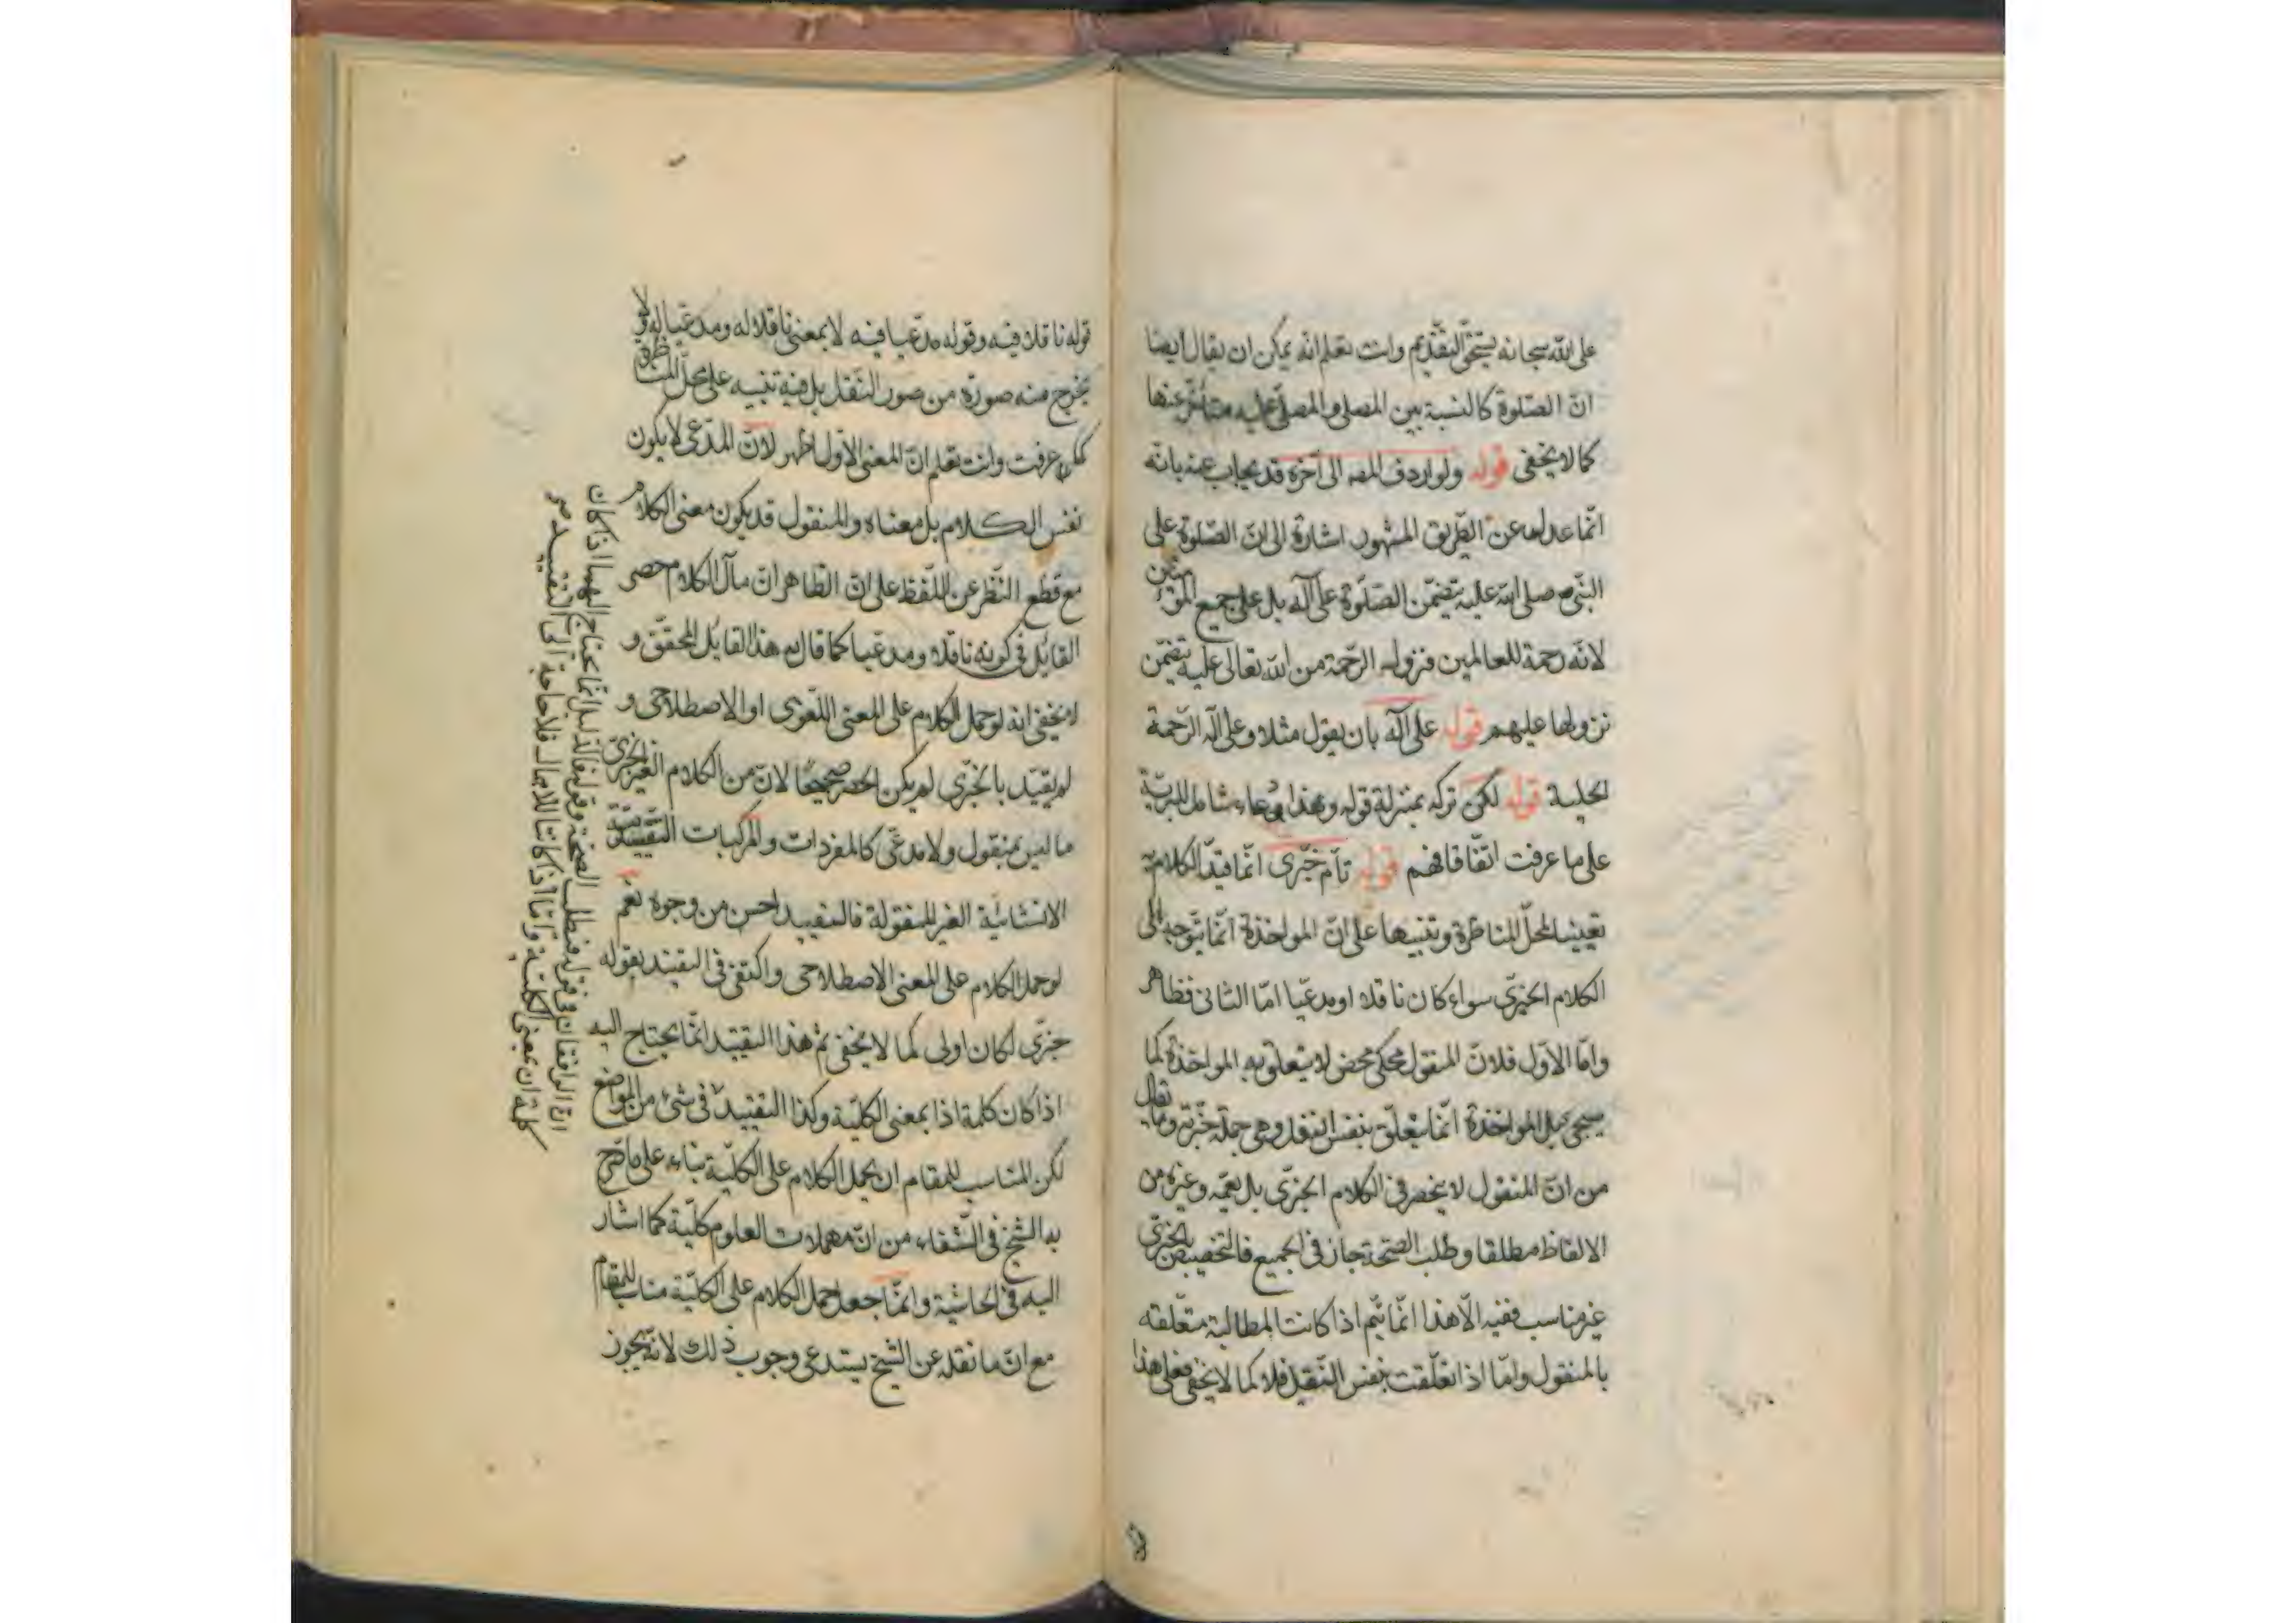 على الله سبحانه يستحق التقديم وانت تعلم انه يمكن ان يقال ايضا
انّ الصّلوة كالنسبة بين المصلى والمصلى عليه متأخّر عنها
كما لا يخفى قوله ولو اردف المصه الى آخره قد يجاب عنه بانّه
انّما عدل عن الطّريق المشهور اشارة الى انّ الصّلوة على
النّبى صلى الله عليه يتضمّن الصّلوة على آله بل على جميع المؤمنين
لانّه رحمة للعالمين فنزول الرّحمة من الله تعالى عليه يتضمّن
نزولها عليهم قوله على آله بان يقول مثلا وعلى آله الرّحمة
الجلية قوله لكن تركه بمنزلة قوله وهذا دعاء شامل للبريّة
على ما عرفت اتّفاقا فهم قوله تامّ خبرى انّما قيّد الكلام به
تعيينا لمحلّ المناظرة وتنبيها على انّ المواخذة انّما يتوجه الى
الكلام الخبرىّ سواء كان ناقلا او مدعّيا امّا الثانى فظاهر
وامّا الاوّل فلانّ المنقول محكى محض لا يتعلّق به المواخذة كما
سيجئ بل المواخذة انّما يتعلّق بنفس النقل وهى جملة خبريّة وما يقال
من انّ المنقول لا ينحصر فى الكلام الخبرى بل يعمّه وغيره من
الالفاظ مطلقا وطلب الصّحّة جاز فى الجميع فالتخصيص بالخبرىّ
غير مناسب ففيه الّا هذا انّما يتّم اذا كانت المطالبة متعلّقه
بالمنقول وامّا اذا تعلّقت بنفس النّقل فلا كما لا يخفى فعلى هذا
قوله ناقلا فيه وقوله مدّعيا فيه لا بمعنى ناقلا له ومدعّيا له ولا
يخرج منه صورة من صور النّقل بل فيه تنبيه على محلّ المناظرة
كما عرفت وانت تعلم انّ المعنى الاوّل اظهر لانّ المدّعى لا يكون
نفس الكلام بل معناه والمنقول قد يكون معنى الكلام
مع قطع النّظر عن اللّفظ على انّ الظاهر انّ مآل الكلام حصر
القائل فى كونه ناقلا ومدعّيا كما قال به هذا القايل المحقّق و
لا يخفى انه لو حمل الكلام على المعنى اللّغوى او الاصطلاحى و
لم يقيّد بالخبرّى لم يكن الحصر صحيحًا لانّ من الكلام الغير الخبرىّ
ما ليس بمنقول ولا مدعّى كالمفردات والمركبات التّقييديّة
الانشائيّة الغير المنقولة فالتقييد احسن من وجوه نعم
لو حمل الكلام على المعنى الاصطلاحى واكتفى فى التقييد بقوله
خبرّى لكان اولى كما لا يخفى ثم هذا التقييد انّما يحتاج اليه
اذا كان كلمة اذا بمعنى الكليّة وكذا التقييد فى شئ من المواضع
لكن المناسب للمقام ان يحمل الكلام على الكليّة بناء على ما صرّح
به الشيخ فى الشّفاء من انّ مهملات العلوم كليّة كما اشار
اليه فى الحاشية وانّما جعل حمل الكلام على الكليّة مناسب للمقام
مع انّ ما نقله عن الشيخ يستدعى وجوب ذلك لانّه يجوز
انّما يحتاج اليهما اذا كان
كلمة ان بمعنى الكليّة وامّا اذا كانتا للاهمال فلا حاجة الى التقييد